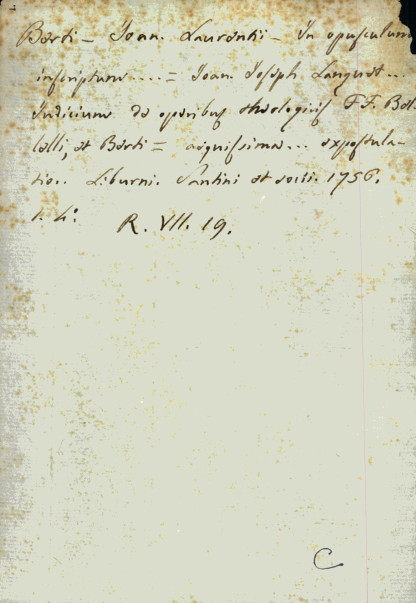 Berti = Joan. Laurenti = In opusculum
inscriptum .... = Joan. Joseph Languet ...
Judicium de operibus theologicis F.F. Bel
lelli, et Berti = aequissima ... expostula-
tio. Liburni. Santini et socii. 1756.
R. VII. 19.
C